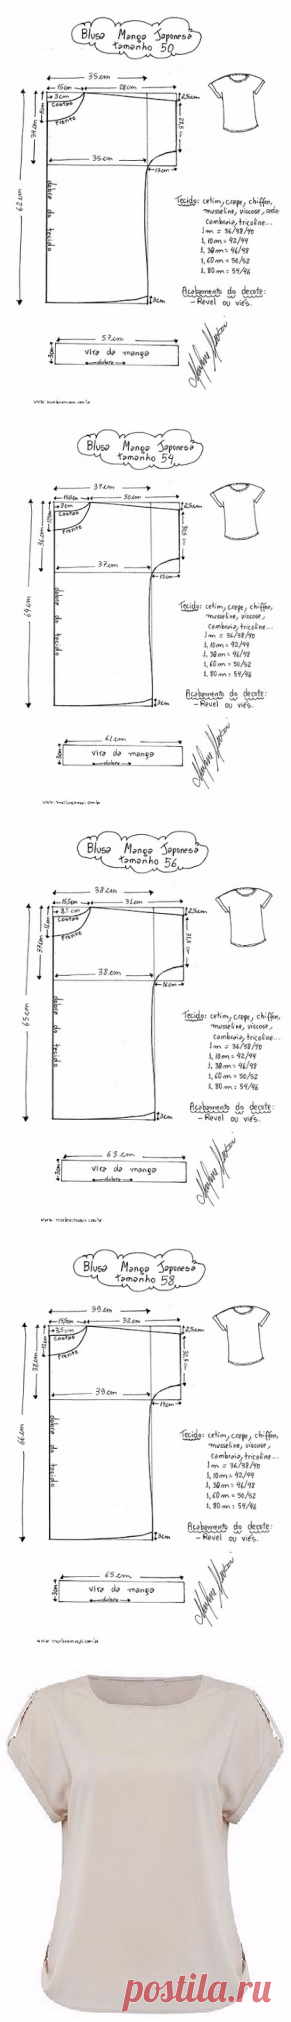 Blusa Manga Japonesa
tamanho 50
35cm
15cm
3cm
2,5cm
costas
frente
35cm
62cm
dobra do tecido
3cm
Tecido: cetim, crepe, chiffon,
musseline, viscose, seda
cambraia, tricoline...
1m = 36/38/40
1,10m = 42/44
1,30m = 46/48
1,60m = 50/52
1,80m = 54/46
Acabamento do decote:
- Revel ou viés.
57cm
3cm
vira da manga
dobra
Blusa Manga Japonesa
tamanho 54
37cm
30cm
3cm
2,5cm
costas
frente
36cm
37cm
15cm
64cm
dobra do tecido
3cm
Tecido: cetim, crepe, chiffon,
musseline, viscose,
cambraia, tricoline...
1m = 36/38/40
1,10m = 42/44
1,30m = 46/48
1,60m = 50/52
1,80m = 54/46
Acabamento do decote:
- Revel ou viés.
61cm
3cm
vira da manga
dobra
Blusa Manga Japonesa
tamanho 56
38cm
15,5cm
31cm
3,5cm
2,5cm
costas
frente
37cm
38cm
16cm
65cm
dobra do tecido
3cm
Tecido: cetim, crepe, chiffon,
musseline, viscose,
cambraia, tricoline...
1m = 36/38/40
1,10m = 42/44
1,30m = 46/48
1,60m = 50/52
1,80m = 54/46
Acabamento do decote:
- Revel ou viés.
63cm
3cm
vira da manga
dobra
Blusa Manga Japonesa
tamanho 58
39cm
15,5cm
32cm
3,5cm
2,5cm
costas
frente
38cm
39cm
17cm
66cm
dobra do tecido
3cm
Tecido: cetim, crepe, chiffon,
musseline, viscose,
cambraia, tricoline...
1m = 36/38/40
1,10m = 42/44
1,30m = 46/48
1,60m = 50/52
1,80m = 54/46
Acabamento do decote:
- Revel ou viés.
65cm
3cm
vira da manga
dobra
postila.ru